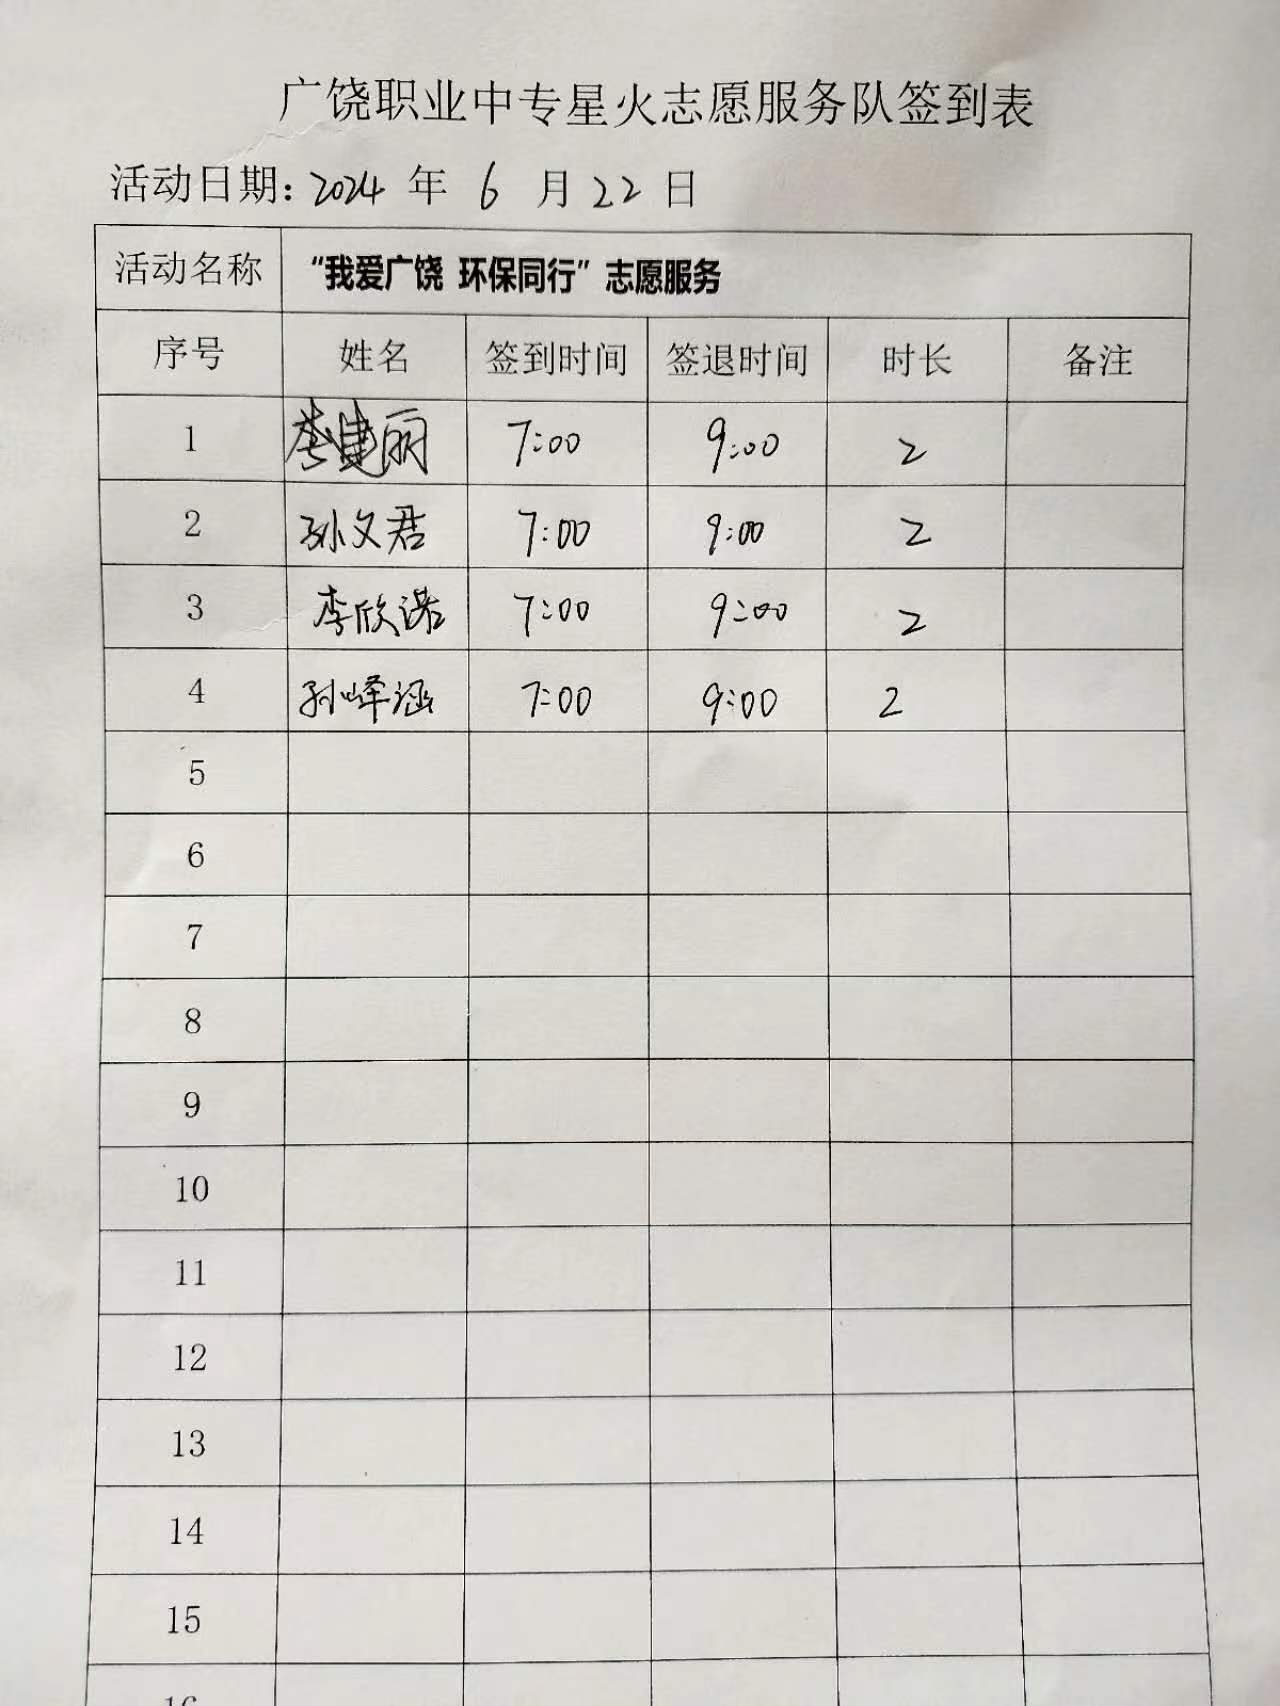 广饶职业中专星火志愿服务队签到表
活动日期: 2024 年 6 月 22 日
活动名称 “我爱广饶 环保同行”志愿服务
序号 姓名 签到时间 签退时间 时长 备注
1 李建丽 7:00 9:00 2
2 孙文君 7:00 9:00 2
3 李欣诺 7:00 9:00 2
4 孙峄涵 7:00 9:00 2
5
6
7
8
9
10
11
12
13
14
15
16